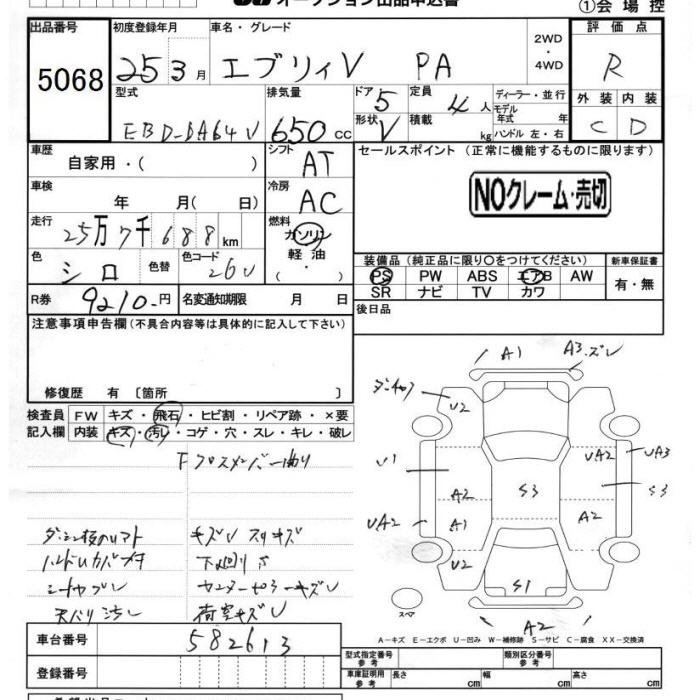 オークション出品申込書
①会場控
出品番号
5068
初度登録年月
25 3月
車名・グレード
エブリィV PA
2WD
・
4WD
評価点
R
型式
EBD-DA64V
排気量
650cc
ドア 5
形状 V
定員 4人
積載 kg
ディーラー・並行
モデル
年式 年
ハンドル 左・右
外装 内装
C D
車歴
自家用・( )
シフト AT
セールスポイント (正常に機能するものに限ります)
NOクレーム・売切
車検
年 月( 日)
冷房 AC
走行
25万7千688km
燃料
ガソリン
軽油
・( )
色 シロ
色替
色コード 26U
装備品(純正品に限り○をつけてください)
新車保証書
PS PW ABS エアB AW
SR ナビ TV カワ
有・無
R券 9210円
名変通知期限 月 日
後日品
注意事項申告欄(不具合内容等は具体的に記入して下さい)
修復歴 有〔箇所 〕
検査員 FW キズ・飛石・ヒビ割・リペア跡・×要
記入欄 内装 キズ・汚レ・コゲ・穴・スレ・キレ・破レ
Fクロスメンバー曲り
キズU スリキズ
シートヤブレ
天バリ汚レ
荷室キズU
A1
A3.ズレ
U2
U1
UA2
UA3
A2
S3
S3
UA2
A1
A2
U2
S1
スペア
A2
A-キズ E-エクボ U-凹み W-補修跡 S-サビ C-腐食 XX-交換済
車台番号
582613
登録番号
型式指定番号
参考
類別区分番号
参考
車庫証明用
参考
長さ cm
幅 cm
高さ cm